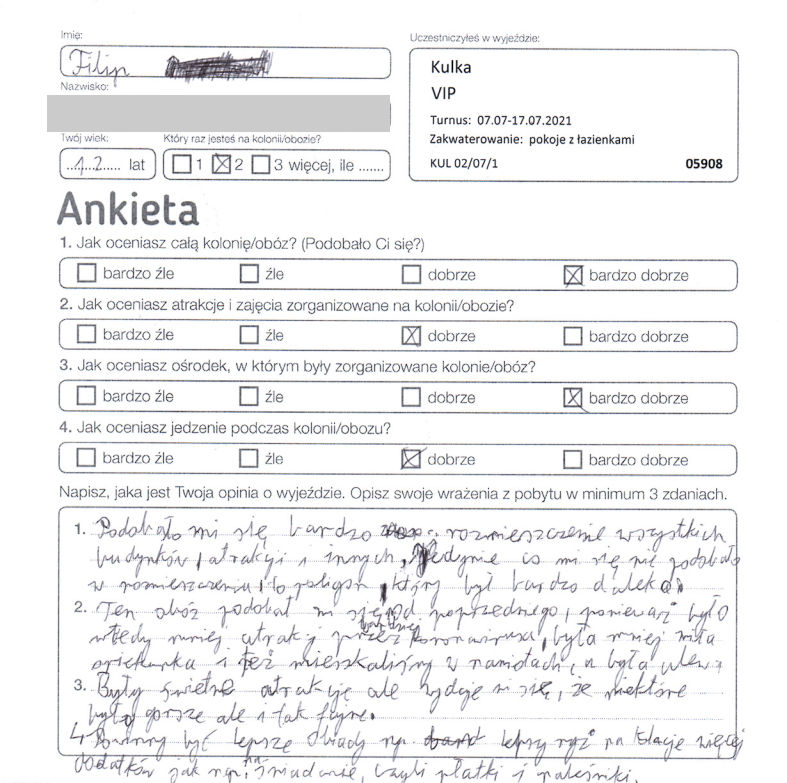 Imię:
Uczestniczyłeś w wyjeździe:
Filip
Kulka
VIP
Nazwisko:
Turnus: 07.07-17.07.2021
Zakwaterowanie: pokoje z łazienkami
KUL 02/07/1 05908
Twój wiek: Który raz jesteś na kolonii/obozie?
12 lat 1 2 3 więcej, ile .......
Ankieta
1. Jak oceniasz całą kolonię/obóz? (Podobało Ci się?)
bardzo źle źle dobrze bardzo dobrze
2. Jak oceniasz atrakcje i zajęcia zorganizowane na kolonii/obozie?
bardzo źle źle dobrze bardzo dobrze
3. Jak oceniasz ośrodek, w którym były zorganizowane kolonie/obóz?
bardzo źle źle dobrze bardzo dobrze
4. Jak oceniasz jedzenie podczas kolonii/obozu?
bardzo źle źle dobrze bardzo dobrze
Napisz, jaka jest Twoja opinia o wyjeździe. Opisz swoje wrażenia z pobytu w minimum 3 zdaniach.
1. Podobało mi się bardzo rozmieszczenie wszystkich
budynków, atrakcji i innych, jedynie co mi się nie podobało
w rozmieszczeniu, to poligon, który był bardzo daleko.
2. Ten obóz podobał mi się bardziej od poprzedniego, ponieważ było
wtedy mniej atrakcji przez koronawirusa, była mniej miła
opiekunka i też mieszkaliśmy w namiotach, a była ulewa
3. Były świetne atrakcje ale wydaje mi się, że niektóre
były gorsze ale i tak fajne.
4. Powinny być lepsze obiady np. lepszy ryż na kolacje więcej
dodatków jak np. na śniadanie, czyli płatki i naleśniki.